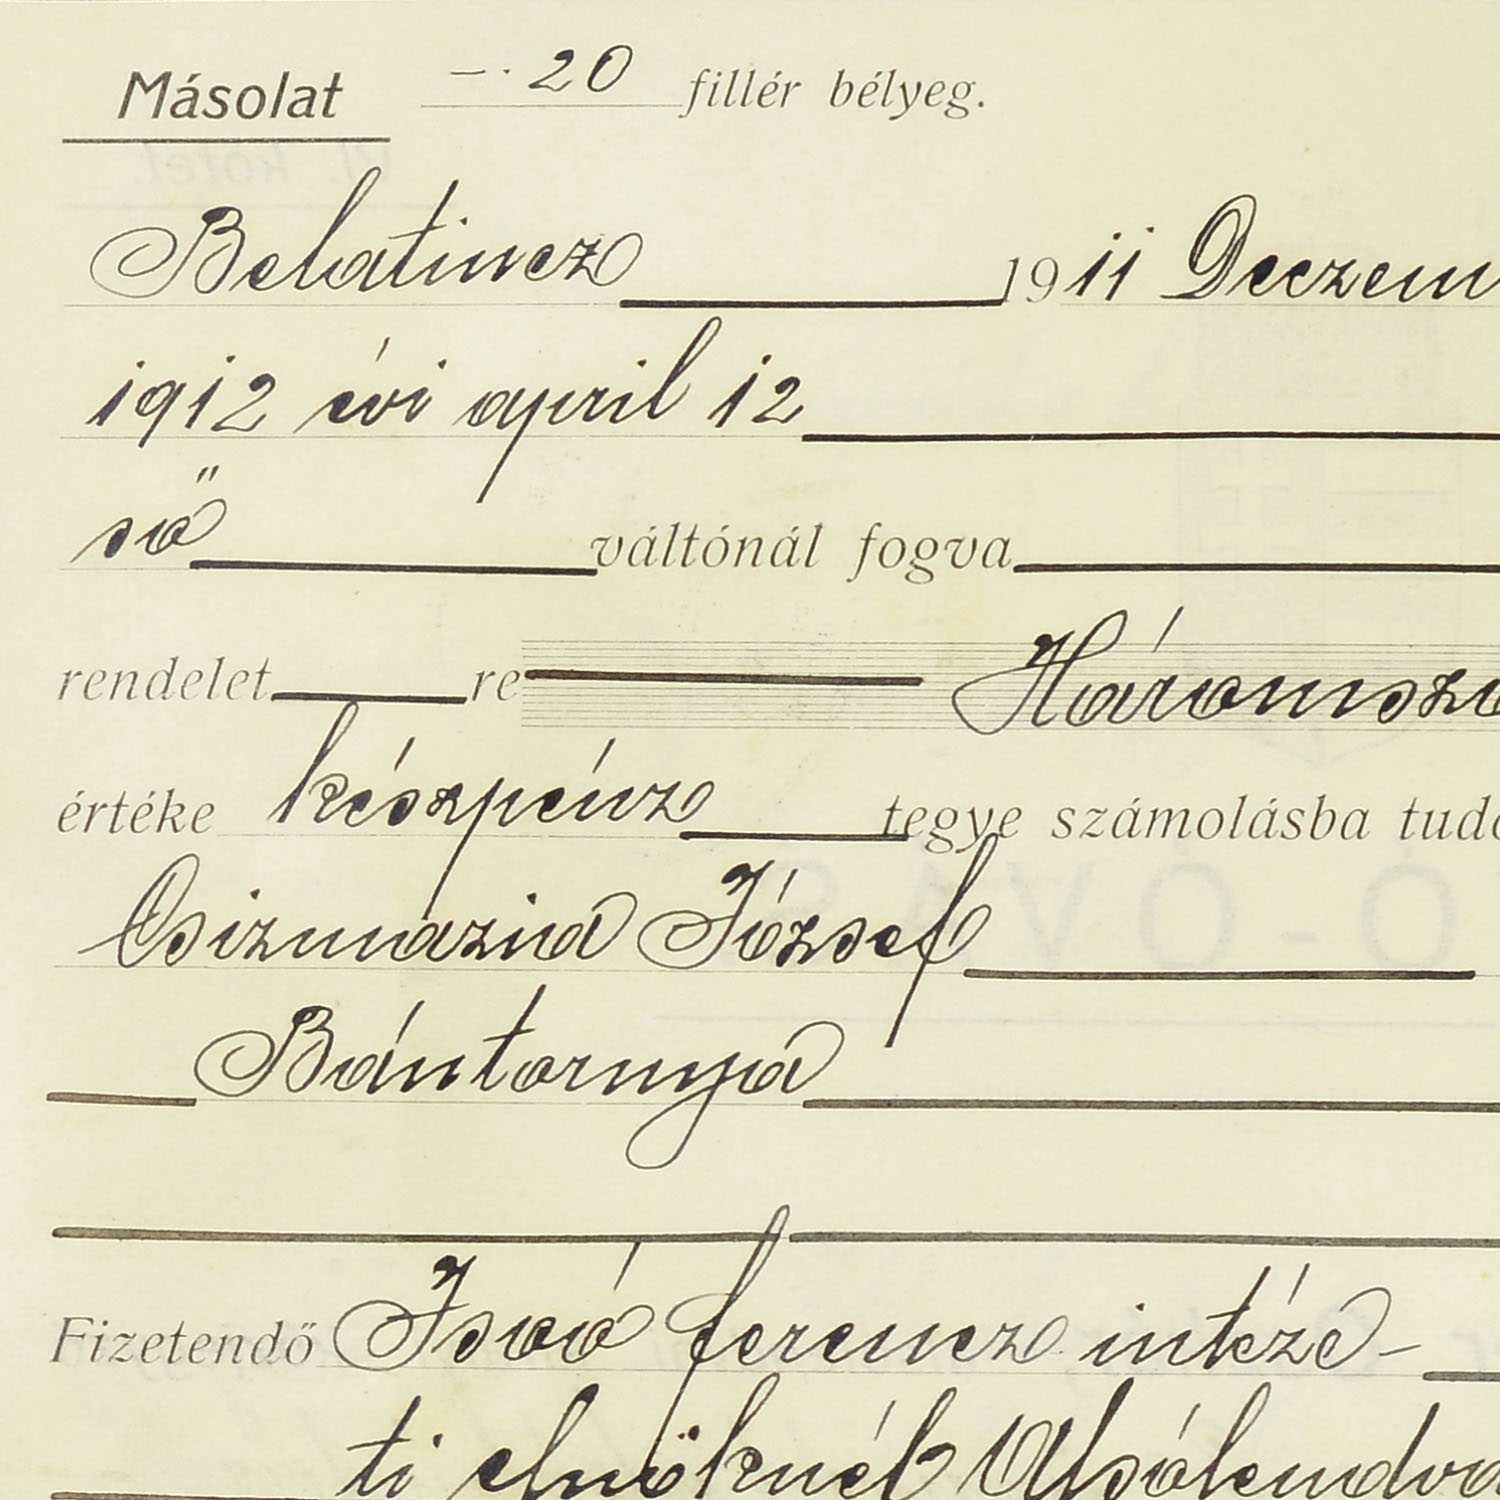 Másolat —. 20 fillér bélyeg.
Belatincz 1911 Deczem
1912 évi april 12
ső váltónál fogva
rendelet re Háromszá
értéke készpénz tegye számolásba tudó
Csizmazia József
Bántornya
Fizetendő Isoó ferencz intéze-
ti elnöknél Alsólendva